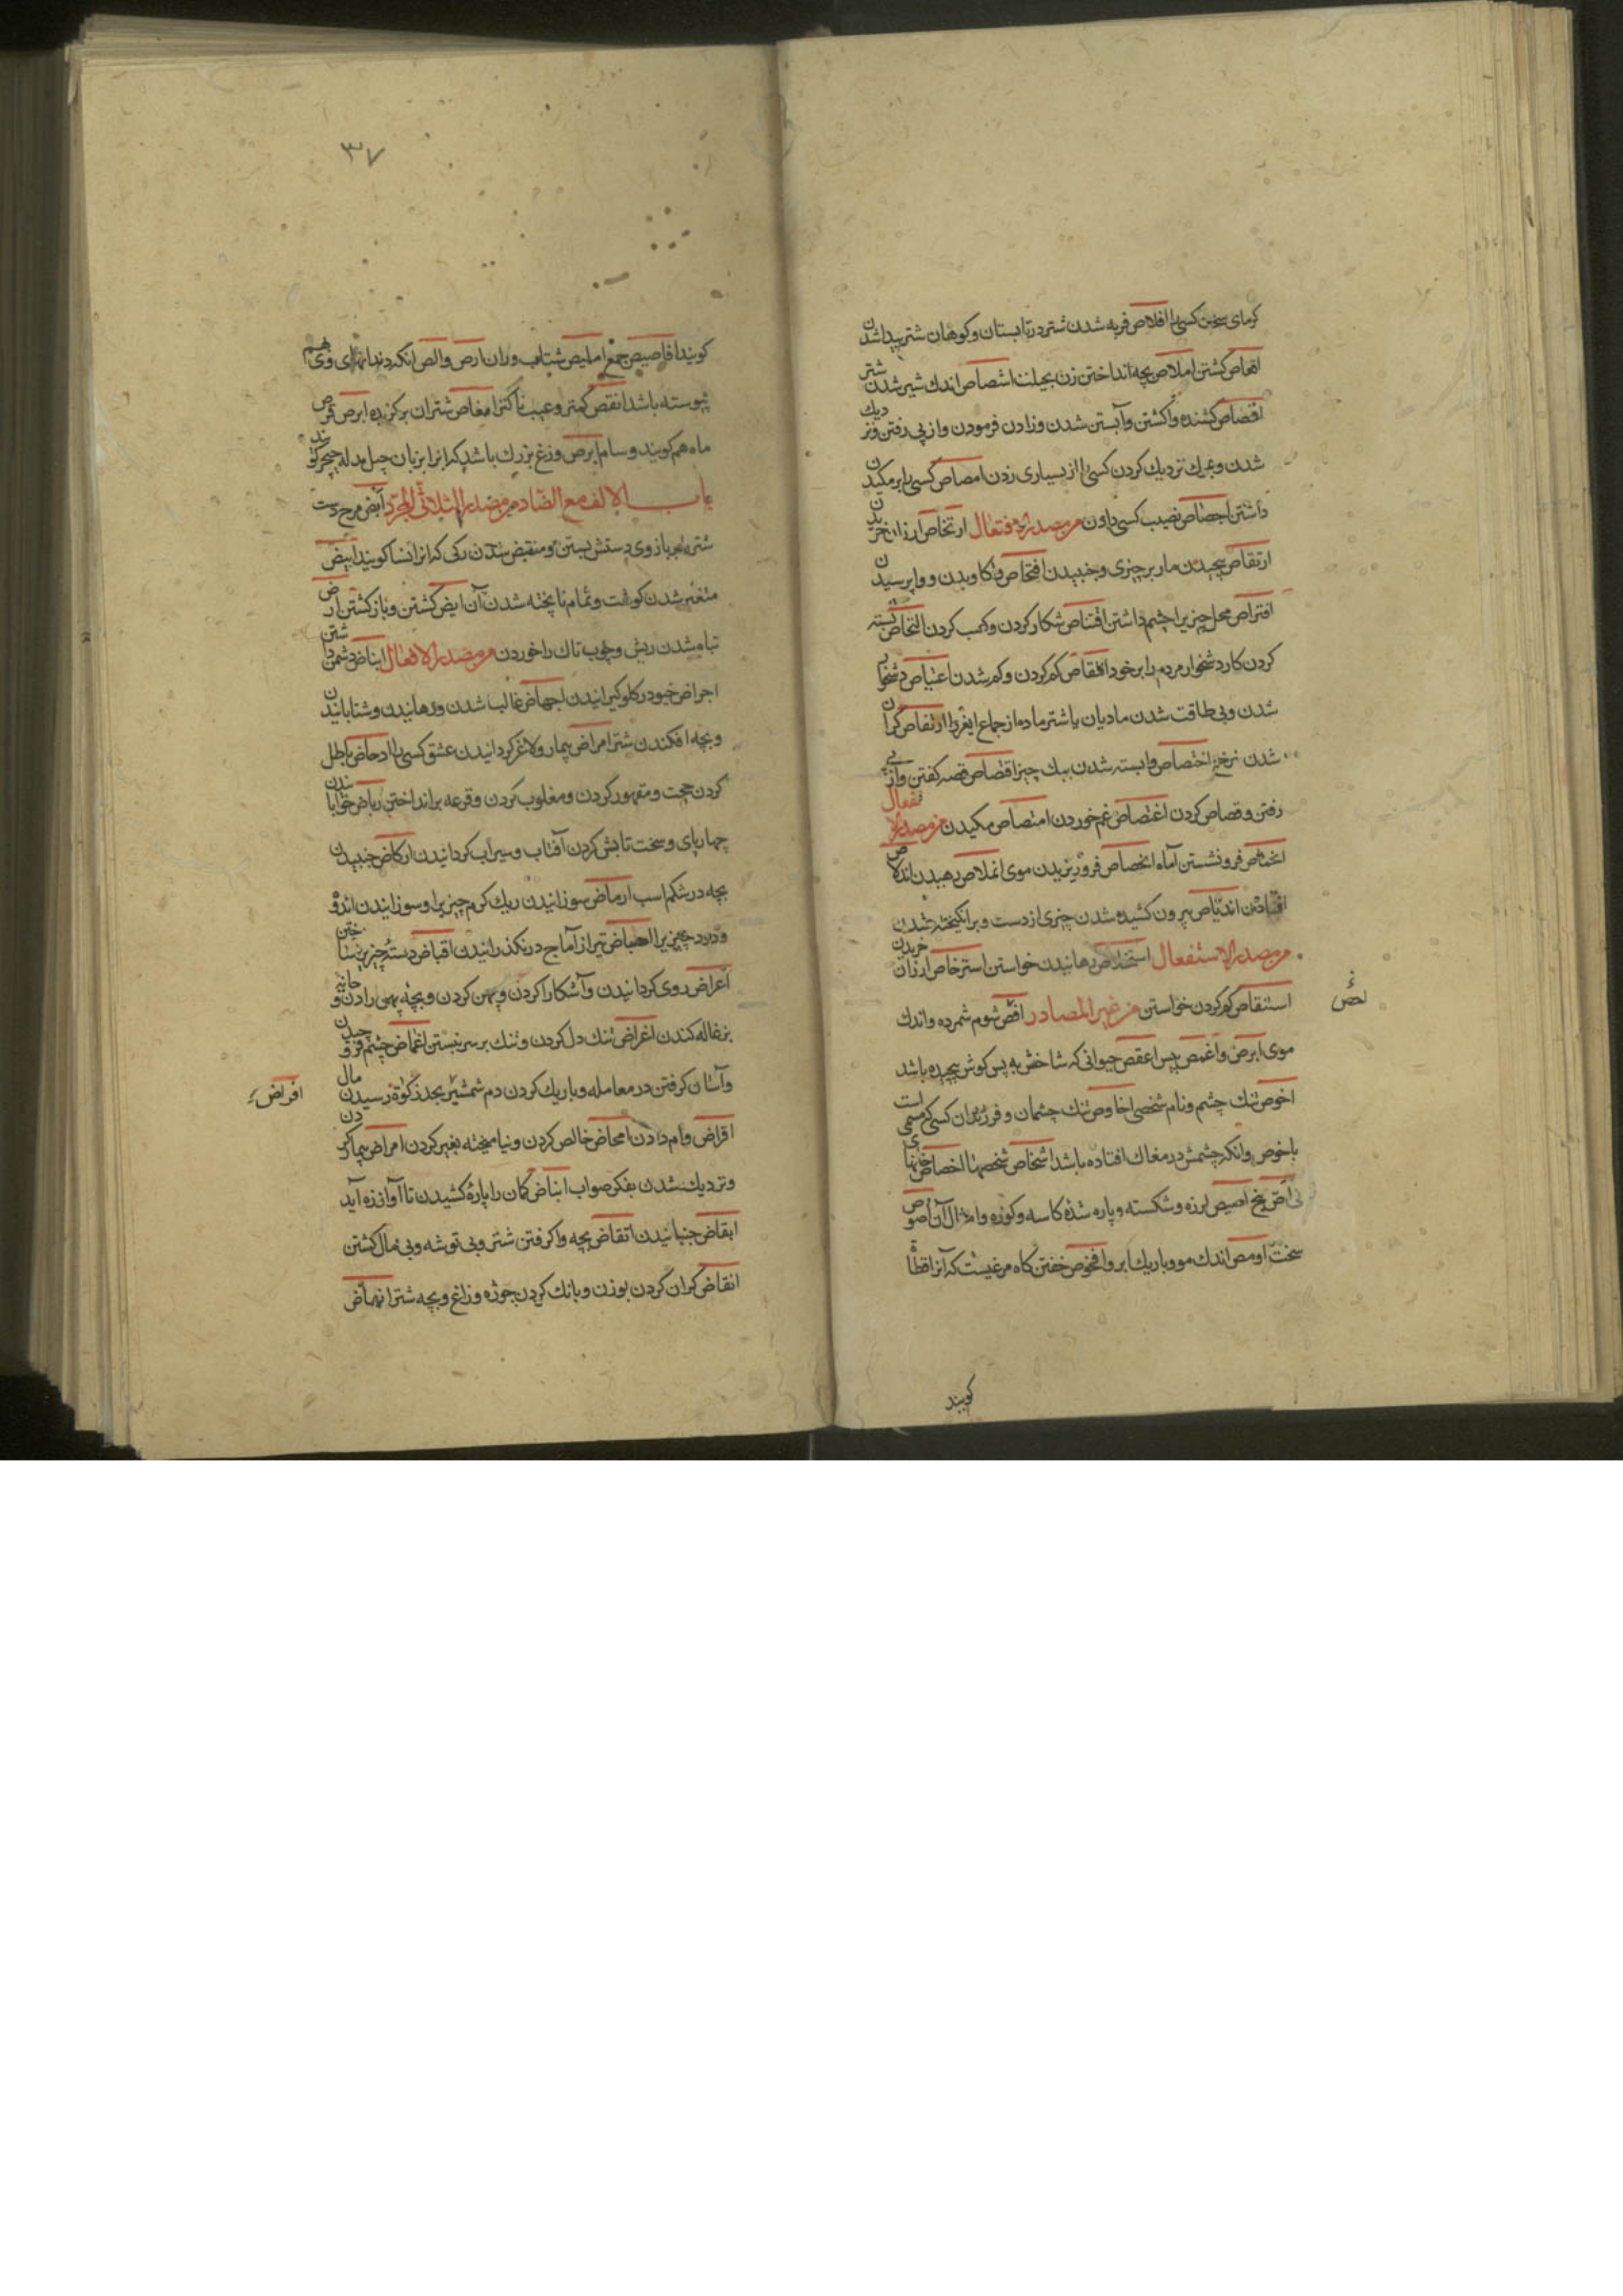 کرمای سخت کسی را افلاص فربه شدن شتر در تابستان و کوهان شتر پیدا شدن
اقعاص کشتن املاص بچه انداختن زن بحیلت اشصاص اندك شیر شدن شتر
اقصاص کشنده واکشتن وآبستن شدن وزادن فرمودن واز پی رفتن ونزدیك
شدن وبمرك نزدیك کردن کسی را از بسیاری زدن امصاص کسی را بر مکیدن
داشتن احصاص نصیب کسی دادن من مصدر الافتعال ارتخاص ارزان خریدن
ارتقاص پیچیدن مار بر چیزی وجنبیدن افتحاص واکاویدن وواپرسیدن
افتراص محل چیزیرا چشم داشتن اقتناص شکار کردن وکسب کردن التحاص بسته
کردن کار دشخوار مردم را بر خود انتقاص کم کردن وکم شدن اعتیاص دشخوار
شدن وبی طاقت شدن مادیان یا شتر ماده از جماع ارتفاص کران
شدن نرخ اختصاص وابسته شدن بیك چیز اقتصاص قصه کفتن واز پی
رفتن وقصاص کردن اغتصاص غم خوردن امتصاص مکیدن من مصدر الانفعال
فرو نشستن آماه انحصاص فرو ریزیدن موی انملاص رهیدن
اندیاص بیرون کشیده شدن چیزی از دست وبرانکیخته شدن
من مصدر الاستفعال استخلاص رهانیدن خواستن استرخاص ارزان خریدن
استنقاص کم کردن خواستن من غیر المصادر شوم شمرده واندك
موی ابرص واغمص پیس اعقص حیوانی که شاخش به پس کوش پیچیده باشد
اخوص تنك چشم ونام شخصی اخاوص تنك چشمان وفرزندان کسی که مسمی است
باخوص وانکه چشمش در مغاك افتاده باشد اشخاص شخصها اخصاص خانهای
نی اصیص لرزه وشکسته وپاره شدهٔ کاسه وکوزه وامثال آن
سخت اومص اندك مو وباریك ابرو افحوص خفتن کاه مرغیست که آنرا قطا
لص
کویند
۳۷
کویند افاحیص جمع املیص شتاب وران ارص والص انکه دندانهای وی بهم
پیوسته باشد انقص کمتر وعیب ناکتر امغاص شتران برکزیده ابرص قرص
ماه هم کویند وسام ابرص وزغ بزرك باشد که انرا بزبان جیل مدله کویند
باب الالف مع الضاد من مصدر الثلاثی المجرد ابض مرح دست
شتر بر بازوی دستش بستن ومنقبض شدن رکی که انرا نسا کویند انیض
متغیر شدن کوشت وتمام ناپخته شدن آن ایض کشتن وباز کشتن ارض
تباه شدن ریش وچوب تاك را خوردن من مصدر الافعال ابغاض دشمن داشتن
اجراض خیو در کلو کیرانیدن اجهاض غالب شدن ورهانیدن وشتابانیدن
وبچه افکندن شتر امراض بیمار ولاغر کردانیدن عشق کسی را ادحاض باطل
کردن حجت ومقهور کردن ومغلوب کردن وقرعه برانداختن ارباض خوابانیدن
چهارپای وسخت تابش کردن آفتاب وسیراب کردانیدن ارکاض جنبیدن
بچه در شکم اسب ارماض سوزانیدن ریك کرم چیزیرا وسوزانیدن اندوه
ودرد چیزیرا احباض تیر از آماج در نکذرانیدن اقباض دسته چیزی ساختن
اعراض روی کردانیدن وآشکارا کردن وپهن کردن وبچه پهن زادن
بزغاله کندن اغراض تنك دل کردن وتنك بر ستر بستن اغماض چشم فرو
وآسان کرفتن در معامله وباریك کردن دم شمشیر بحد زکوة رسیدن مال
اقراض وام دادن امحاض خالص کردن ونیامیخته بغیر کردن امراض بیمار کردن
ونزدیك شدن بفکر صواب انباض کمان را پاره کشیدن تا آواز زه آید
انغاض جنبانیدن انقاض بچه واکرفتن شتر وبی توشه وبی مال کشتن
انقاض کران کردن بوزن وبانك کردن جوزه وزاغ وبچه شتر انهاض
افراض